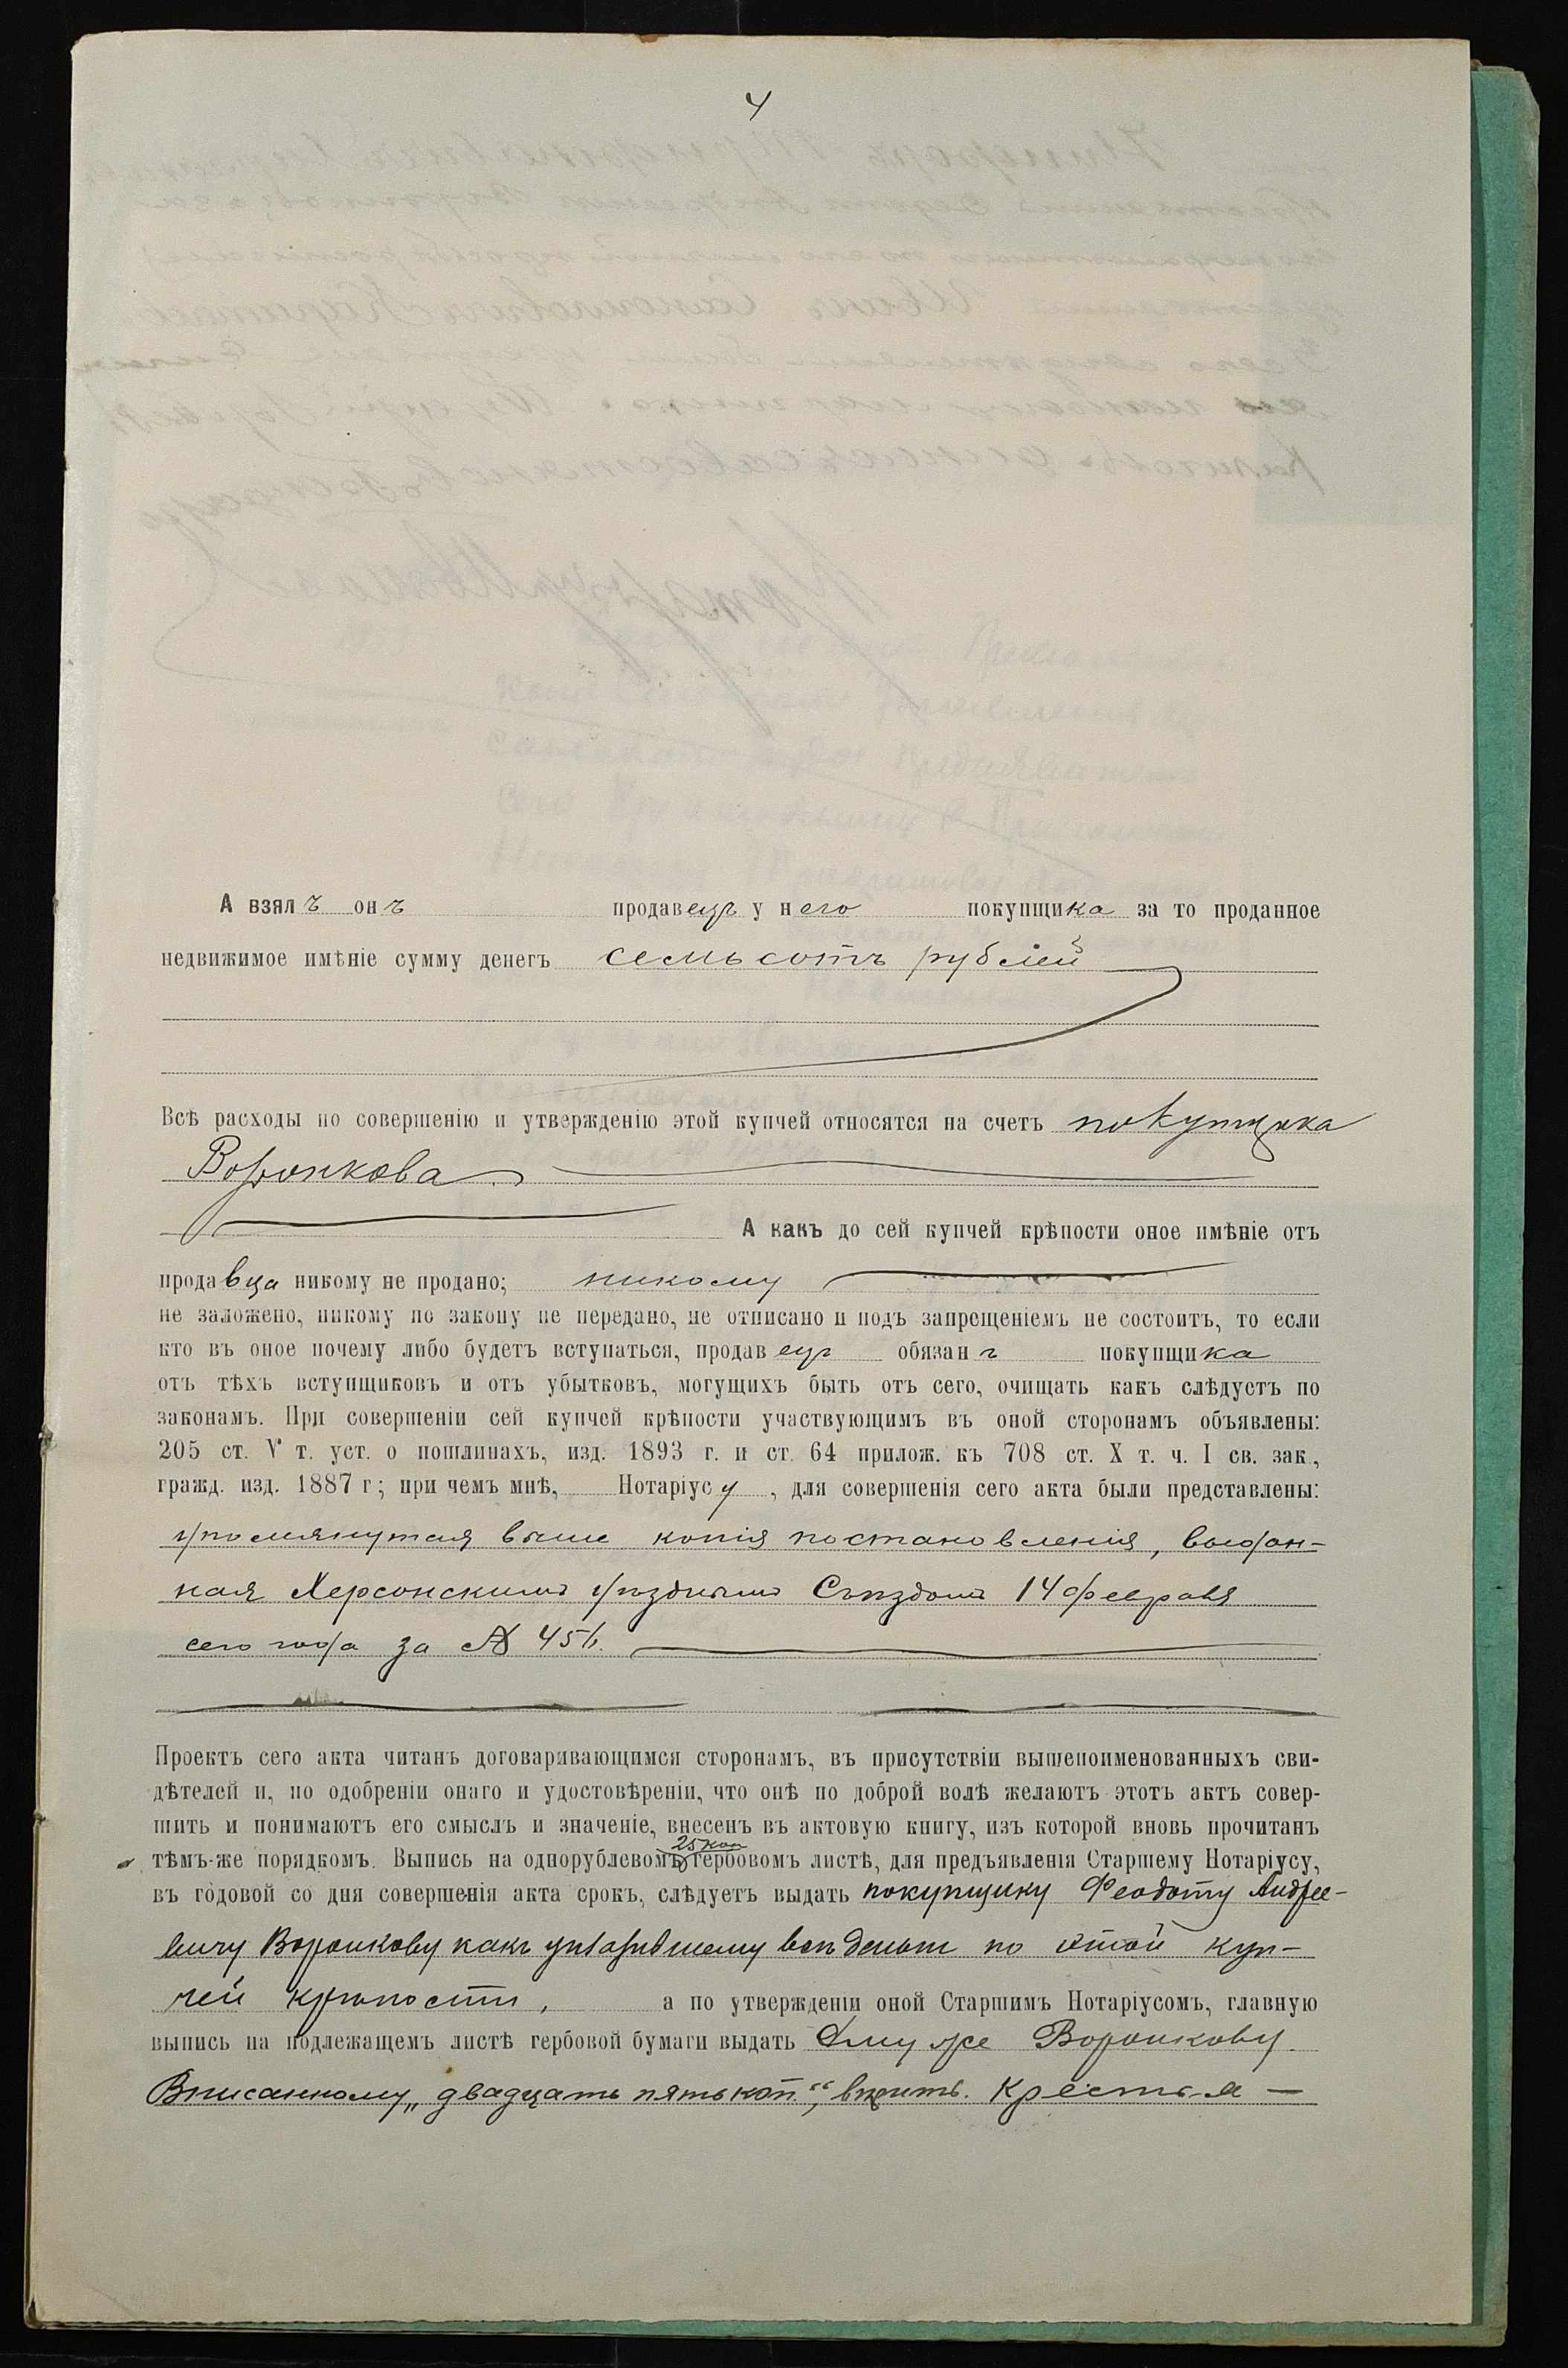 4
А взялъ онъ продавецъ у него покупщика за то проданное
недвижимое имѣніе сумму денегъ семьсотъ рублей
Всѣ расходы по совершенію и утвержденію этой купчей относятся на счетъ покупщика
Воронкова
А какъ до сей купчей крѣпости оное имѣніе отъ
продавца никому не продано; никому
не заложено, никому по закону не передано, не отписано и подъ запрещеніемъ не состоитъ, то если
кто въ оное почему либо будетъ вступаться, продавецъ обязанъ покупщика
отъ тѣхъ вступщиковъ и отъ убытковъ, могущихъ быть отъ сего, очищать какъ слѣдуетъ по
законамъ. При совершеніи сей купчей крѣпости участвующимъ въ оной сторонамъ объявлены:
205 ст. V т. уст. о пошлинахъ, изд. 1893 г. и ст. 64 прилож. къ 708 ст. X т. ч. I св. зак.,
гражд. изд. 1887 г; при чемъ мнѣ, Нотаріусу, для совершенія сего акта были представлены:
упомянутая выше копія постановленія, выдан-
ная Херсонскимъ уѣзднымъ Съѣздомъ 14 февраля
сего года за №
Проектъ сего акта читанъ договаривающимся сторонамъ, въ присутствіи вышепоименованныхъ сви-
дѣтелей и, по одобреніи онаго и удостовѣреніи, что онѣ по доброй волѣ желаютъ этотъ актъ совер-
шить и понимаютъ его смыслъ и значеніе, внесенъ въ актовую книгу, изъ которой вновь прочитанъ
25 коп
тѣмъ-же порядкомъ. Выпись на однорублевомъ гербовомъ листѣ, для предъявленія Старшему Нотаріусу,
въ годовой со дня совершенія акта срокъ, слѣдуетъ выдать покупщику Феодоту Андрее-
вичу Воронкову какъ уплатившему всѣ деньги по этой куп-
чей крѣпости, а по утвержденіи оной Старшимъ Нотаріусомъ, главную
выпись на подлежащемъ листѣ гербовой бумаги выдать Ему же Воронкову.
Вписанному „двадцать пять коп.“, вѣрить. Крестья-